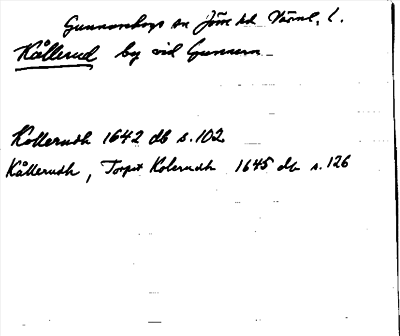 Gunnarskogs sn Jösse hd Värml. l.
Kållerud by vid Gunnern
Kollerudh 1642 db s. 102
Kållerudh, Torpit Kolerudh 1645 db s. 126